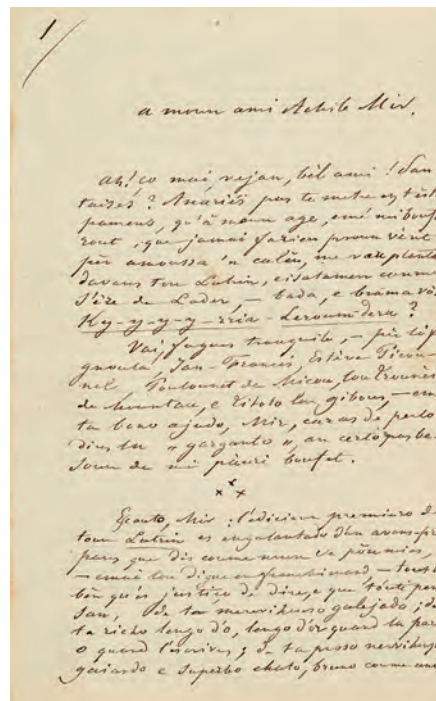 1
a moun ami Achile Mir.
Ah! ço mai, vejan, bèl ami! San
taises? Anariés pas te metre en tèsto
pamens, qu'à moun age, emé mi bouf
rout, que jamai farien proun vènt
pèr amoussa 'n calèu, me vau planta
davans toun Lutrin, eisatamen coume
s'ère de Lader, — bada, e brama vò
Ky-y-y-y-rria-Leroundera?
Vai, fugues tranquile, — pèr
Jan-Francés, Estève
nel, Toutounet de Micou, lou
de e Titoto lou gibous, — em
ta bono ajudo, Mir, car as de perlo
dins ta "garganto", an certo pas be
soun de mi pàuri boufet.
x x x
Escouto, Mir: l'edicioun premiero de
toun Lutrin es engalantado d'un avans-pr
paus que dis coume
— emai lou digue en franchimand — tout
bèn qu'es justiço de dire, e que tóuti pen
san, de ta mervihouso galejado; de
ta richo lengo d'o, lengo d'or quand la par
o quand l'escrives; de ta
gaiardo e superbo chato, bruno coume uno